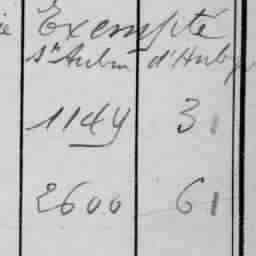 Exempté
St Aubin d'Aubig
1149 31
2600 61